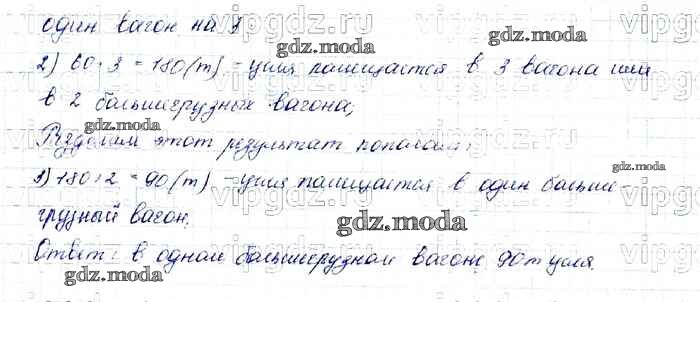 один вагон на
gdz.moda
2) 60 · 3 = 180 (т) - угля помещается в 3 вагона или
в 2 большегрузных вагона;
gdz.moda
Разделим этот результат пополам:
gdz.moda
3) 180 : 2 = 90 (т) - угля помещается в один больше-
грузный вагон.
gdz.moda
Ответ: в одном большегрузном вагоне 90 т угля.
gdz.moda
vipgdz.ru